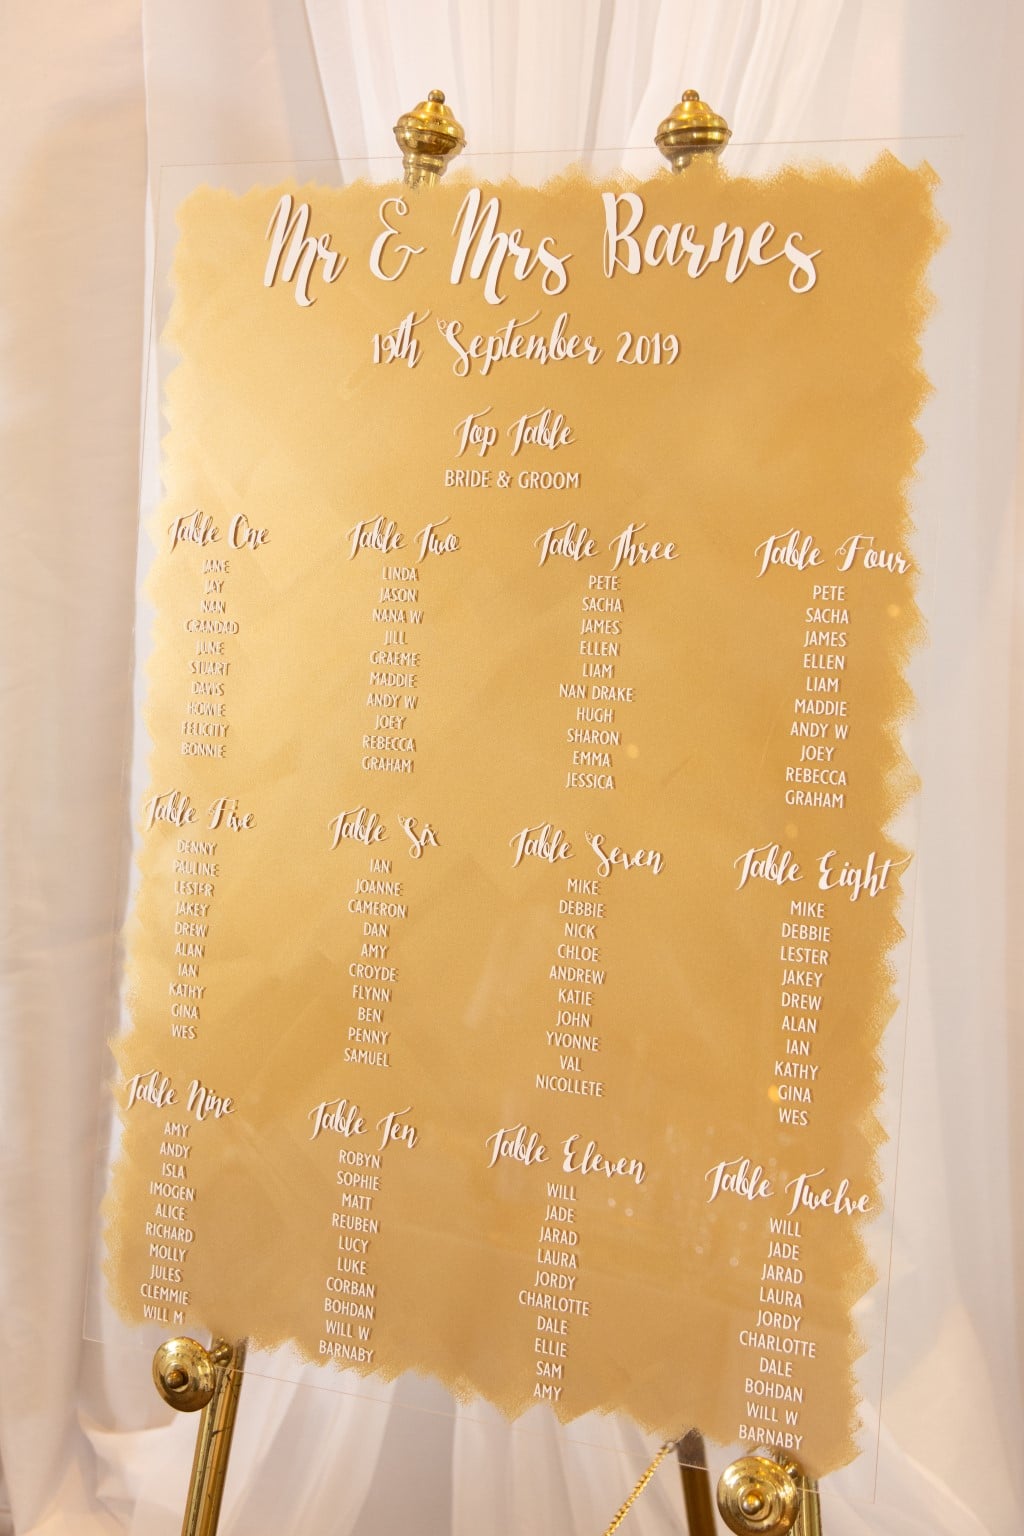 Mr & Mrs Barnes
19th September 2019
Top Table
BRIDE & GROOM
Table One
JANE
JAY
NAN
GRANDAD
JUNE
STUART
DAWS
HOWIE
FELICITY
BONNIE
Table Two
LINDA
JASON
NANA W
JILL
GRAEME
MADDIE
ANDY W
JOEY
REBECCA
GRAHAM
Table Three
PETE
SACHA
JAMES
ELLEN
LIAM
NAN DRAKE
HUGH
SHARON
EMMA
JESSICA
Table Four
PETE
SACHA
JAMES
ELLEN
LIAM
MADDIE
ANDY W
JOEY
REBECCA
GRAHAM
Table Five
DENNY
PAULINE
LESTER
JAKEY
DREW
ALAN
IAN
KATHY
GINA
WES
Table Six
IAN
JOANNE
CAMERON
DAN
AMY
CROYDE
FLYNN
BEN
PENNY
SAMUEL
Table Seven
MIKE
DEBBIE
NICK
CHLOE
ANDREW
KATIE
JOHN
YVONNE
VAL
NICOLLETE
Table Eight
MIKE
DEBBIE
LESTER
JAKEY
DREW
ALAN
IAN
KATHY
GINA
WES
Table Nine
AMY
ANDY
ISLA
IMOGEN
ALICE
RICHARD
MOLLY
JULES
CLEMMIE
WILL M
Table Ten
ROBYN
SOPHIE
MATT
REUBEN
LUCY
LUKE
CORBAN
BOHDAN
WILL W
BARNABY
Table Eleven
WILL
JADE
JARAD
LAURA
JORDY
CHARLOTTE
DALE
ELLIE
SAM
AMY
Table Twelve
WILL
JADE
JARAD
LAURA
JORDY
CHARLOTTE
DALE
BOHDAN
WILL W
BARNABY